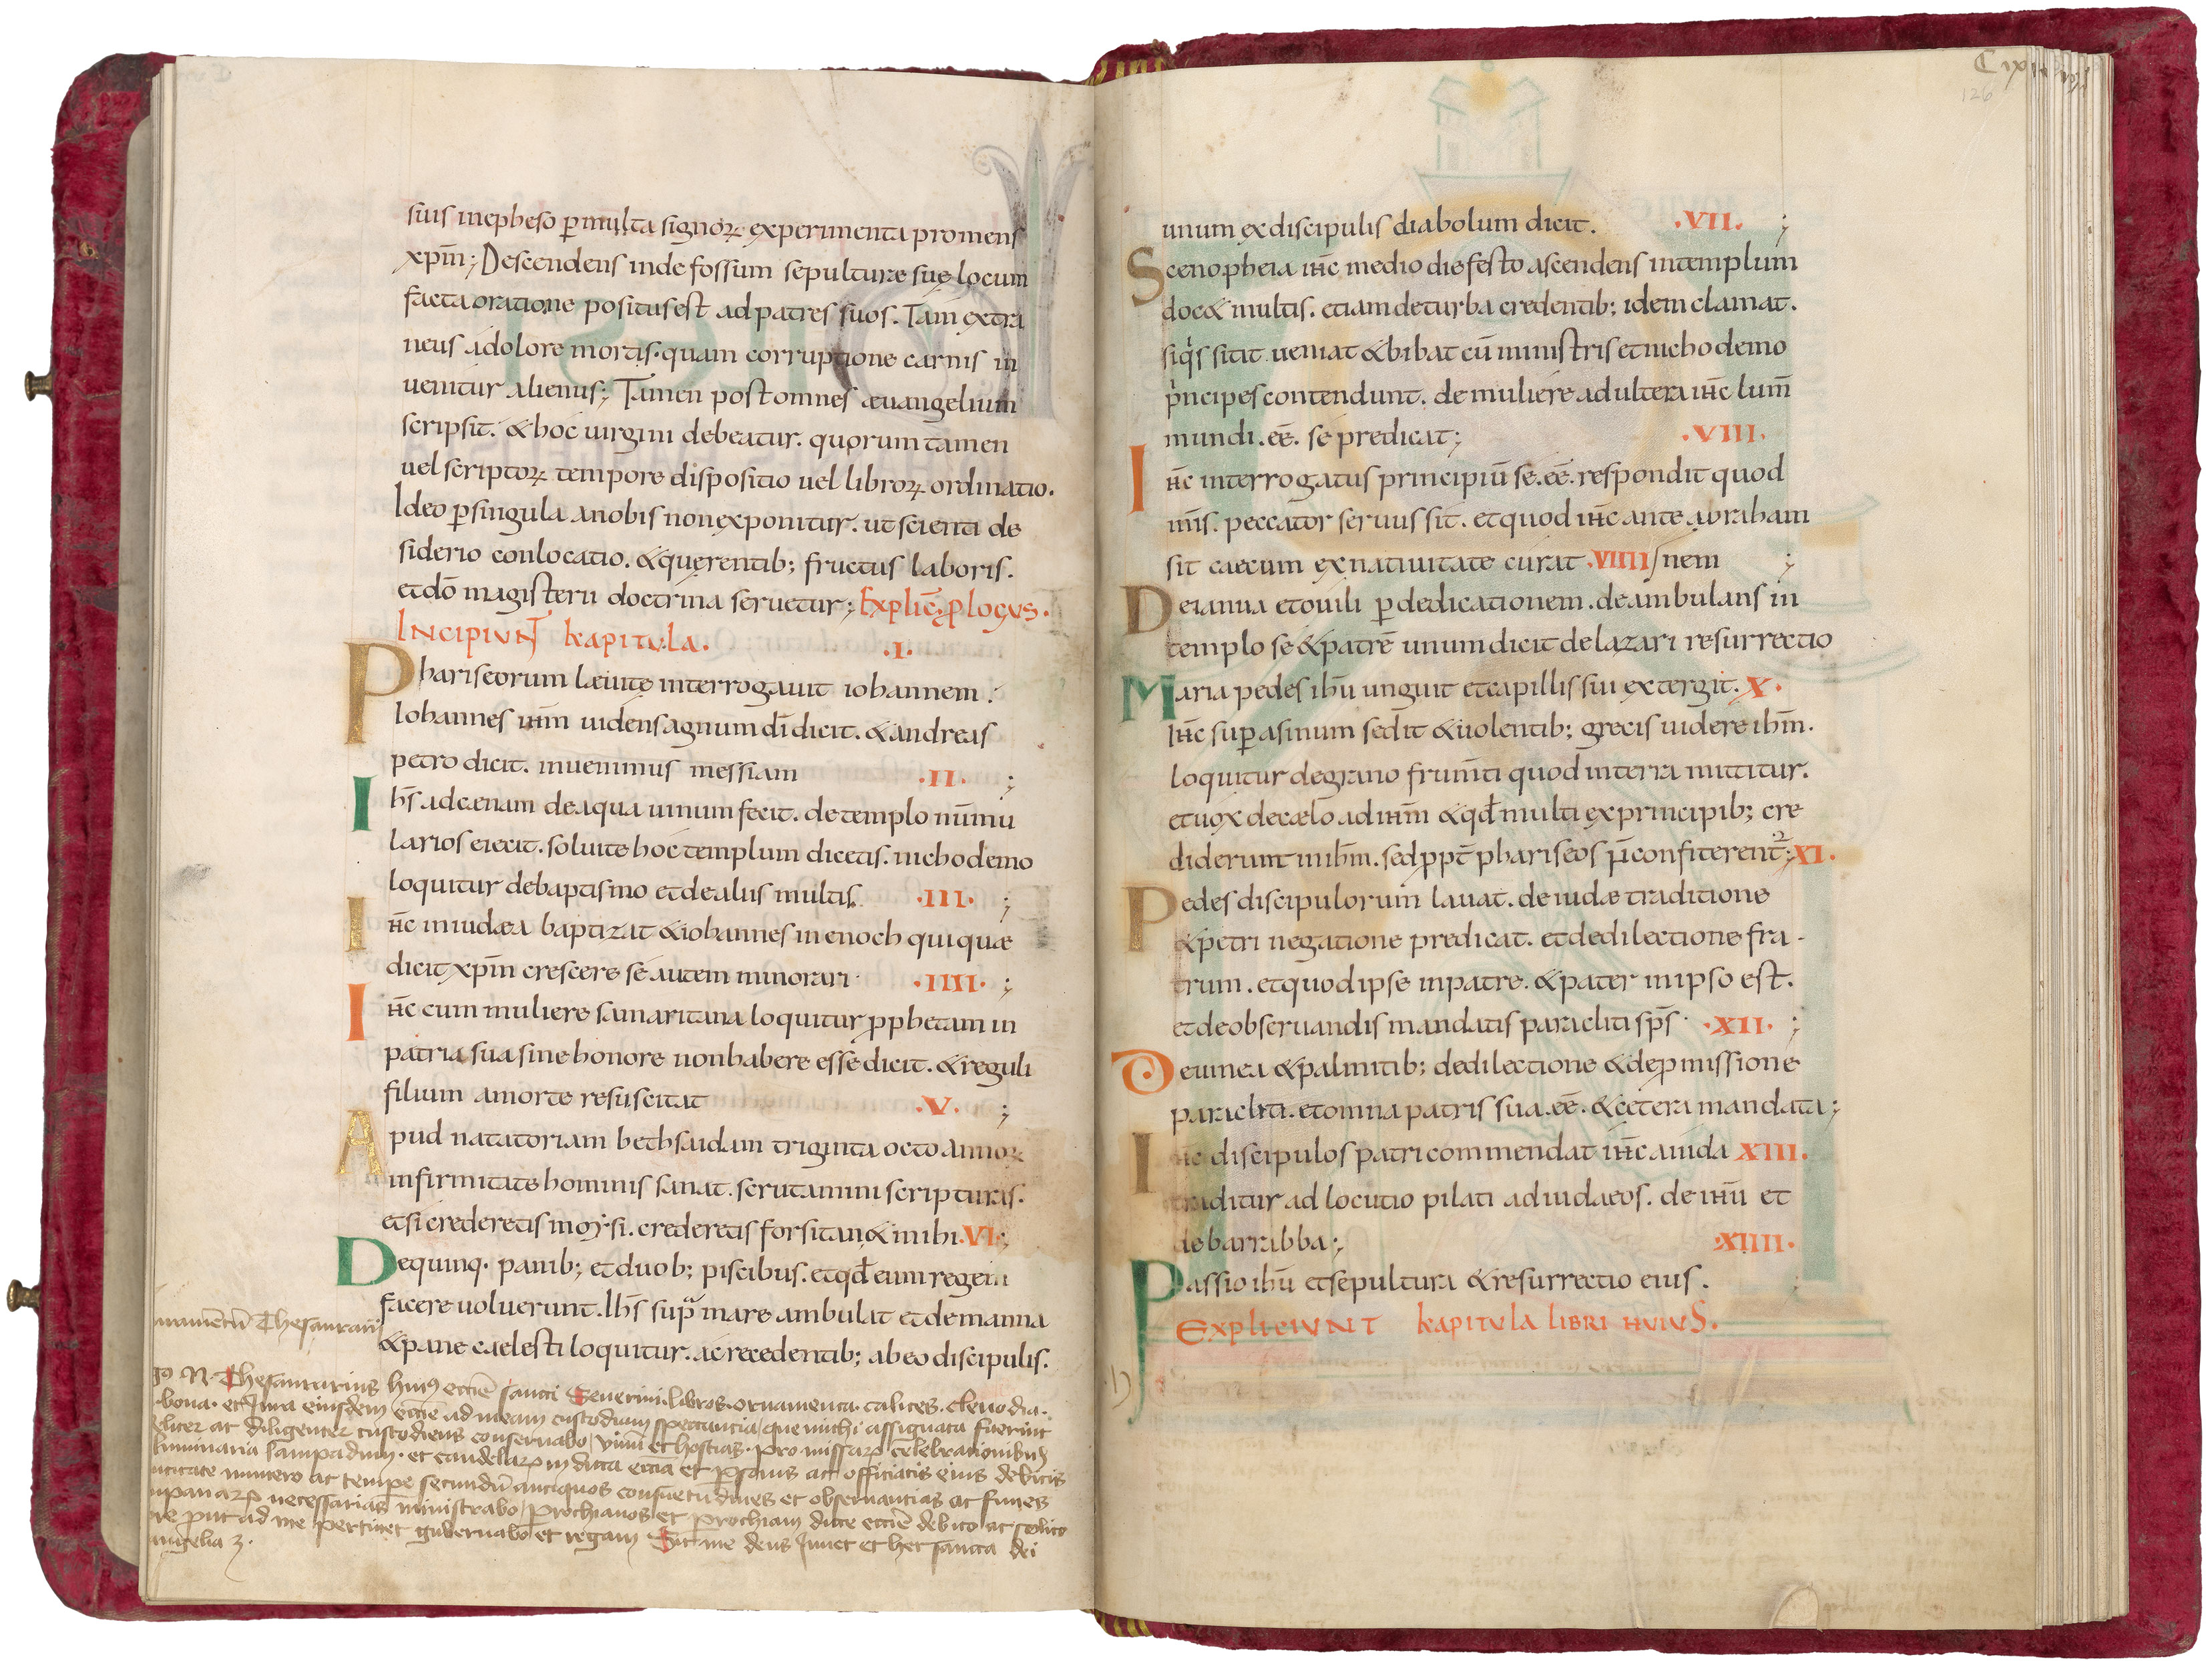 suis inepheso p̄ multa signoꝝ experimenta promens
xpm̄; Descendens inde fossum sepulturae suę locum
facta oratione positus est ad patres suos. Tam extra
neus a dolore mortis. quam corruptione carnis in
uenitur alienus; Tamen post omnes aeuangelium
scripsit. & hoc uirgini debeatur. quorum tamen
uel scriptoꝝ tempore dispositio uel libroꝝ ordinatio.
Ideo p̄ singula a nobis non exponitur. ut scienti de
siderio conlocatio. & querentib; fructus laboris.
et dō magisterii doctrina seruetur; Explic̄ p̄logus.
Incipiunt kapitula. .I.
Phariseorum laeuitę interrogauit iohannem;
Iohannes ihm̄ uidens agnum dī dicit. & andreas
petro dicit. inuenimus messiam .II. ;
Ihs̄ ad cenam de aqua uinum fecit. de templo nūmu
larios eiecit. soluite hoc templum dicetis. nichodemo
loquitur de baptismo et de aliis multis .III. ;
Ihc̄ in iudaea baptizat & iohannes in enoch qui quae
dicit xpm̄ crescere se autem minorari .IIII. ;
Ihc̄ cum muliere samaritana loquitur p̄phetam in
patria sua sine honore non habere esse dicit. & reguli
filium a morte resuscitat .V. ;
Apud natatoriam bethsaidam triginta octo annoꝝ
infirmitate hominis sanat. scrutamini scripturas.
et si crederetis moysi. crederetis forsitan & mihi .VI. ;
De quinq. panib; et duob; piscibus. et qđ eum regem
facere uoluerunt. Ihs̄ supra mare ambulat et de manna
& pane caelesti loquitur. ac recedentib; ab eo discipulis.
Thesaurarii
N. Thesaurarius huiꝰ eccīe sancti Seuerini. libros. ornamenta. calices. clenodia.
bona. et Jura eiusdem eccīe ad meam custodiam spectancia / que michi assignata fuerint
ac diligenter custodiens conseruabo / vinū et hostias. pro missarꝝ celebrationibus
luminaria lampadum. et candelarꝝ in dicta eccīa et
numero ac tempore secundū antiquos consuetudines et obseruantias ac funes
necessarias ministrabo / parrochianos et parrochiam dicte eccīe debito ac solito
put ad me pertinet gubernabo et regam Sic me deus Juuet et hec sancta dei
126
unum ex discipulis diabolum dicit. .VII. ;
Scenopheia ihc̄ medio die festo ascendens in templum
doc& multis. etiam de turba credentib; idem clamat.
siqͥs sitit ueniat & bibat cū ministris et nichodemo
pͥncipes contendunt. de muliere adultera ihc̄ lum̄
mundi. eē. se predicat; .VIII.
Ihc̄ interrogatus principiū se. eē. respondit quod
om̄s. peccator seruus sit. et quod ihc̄ ante abraham
sit caecum ex natiuitate curat .VIIII. / nem ;
De ianua et ouili p̄ dedicationem. deambulans in
templo se & patrē unum dicit de lazari resurrectio
Maria pedes ihū unguit et capillis sui extergit. X.
Ihc̄ sup̄ asinum sedit & uolentib; grecis uidere ihm̄.
loquitur de grano frum̄ti quod in terra mittitur.
et uox de caelo ad ihm̄ & qđ multi ex principib; cre
diderunt in ihm̄. sed ppt̄ phariseos n̄ confiterent̄; XI.
Pedes discipulorum lauat. de iudae traditione
& petri negatione predicat. et de dilectione fra-
trum. et quod ipse in patre. & pater in ipso est.
et de obseruandis mandatis paracliti sp̄s .XII. ;
De uinea & palmitib; de dilectione & de p̄missione
paracliti. et omnia patris sua. eē. & cetera mandata;
Ihc̄ discipulos patri commendat ihc̄ a iuda XIII.
traditur adlocutio pilati ad iudaeos. de ihū et
de barrabba; .XIIII.
Passio ihū et sepultura & resurrectio eius.
Expliciunt kapitula libri huius.